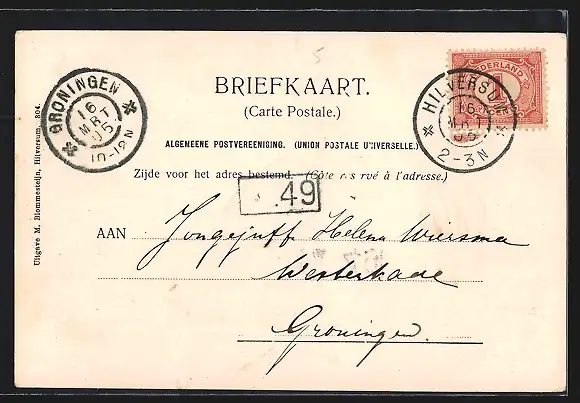 BRIEFKAART.
(Carte Postale.)
ALGEMEENE POSTVEREENIGING. (UNION POSTALE UNIVERSELLE.)
Zijde voor het adres bestemd. (Côte rés rvé à l'adresse.)
GRONINGEN
16
MRT
05
10-12N
NEDERLAND
1
HILVERSUM
16
MRT
05
2-3N
49
AAN Jongejuff. Helena Wiersma
Westerkade
Groningen.
Uitgave M. Blommesteijn, Hilversum. 304.